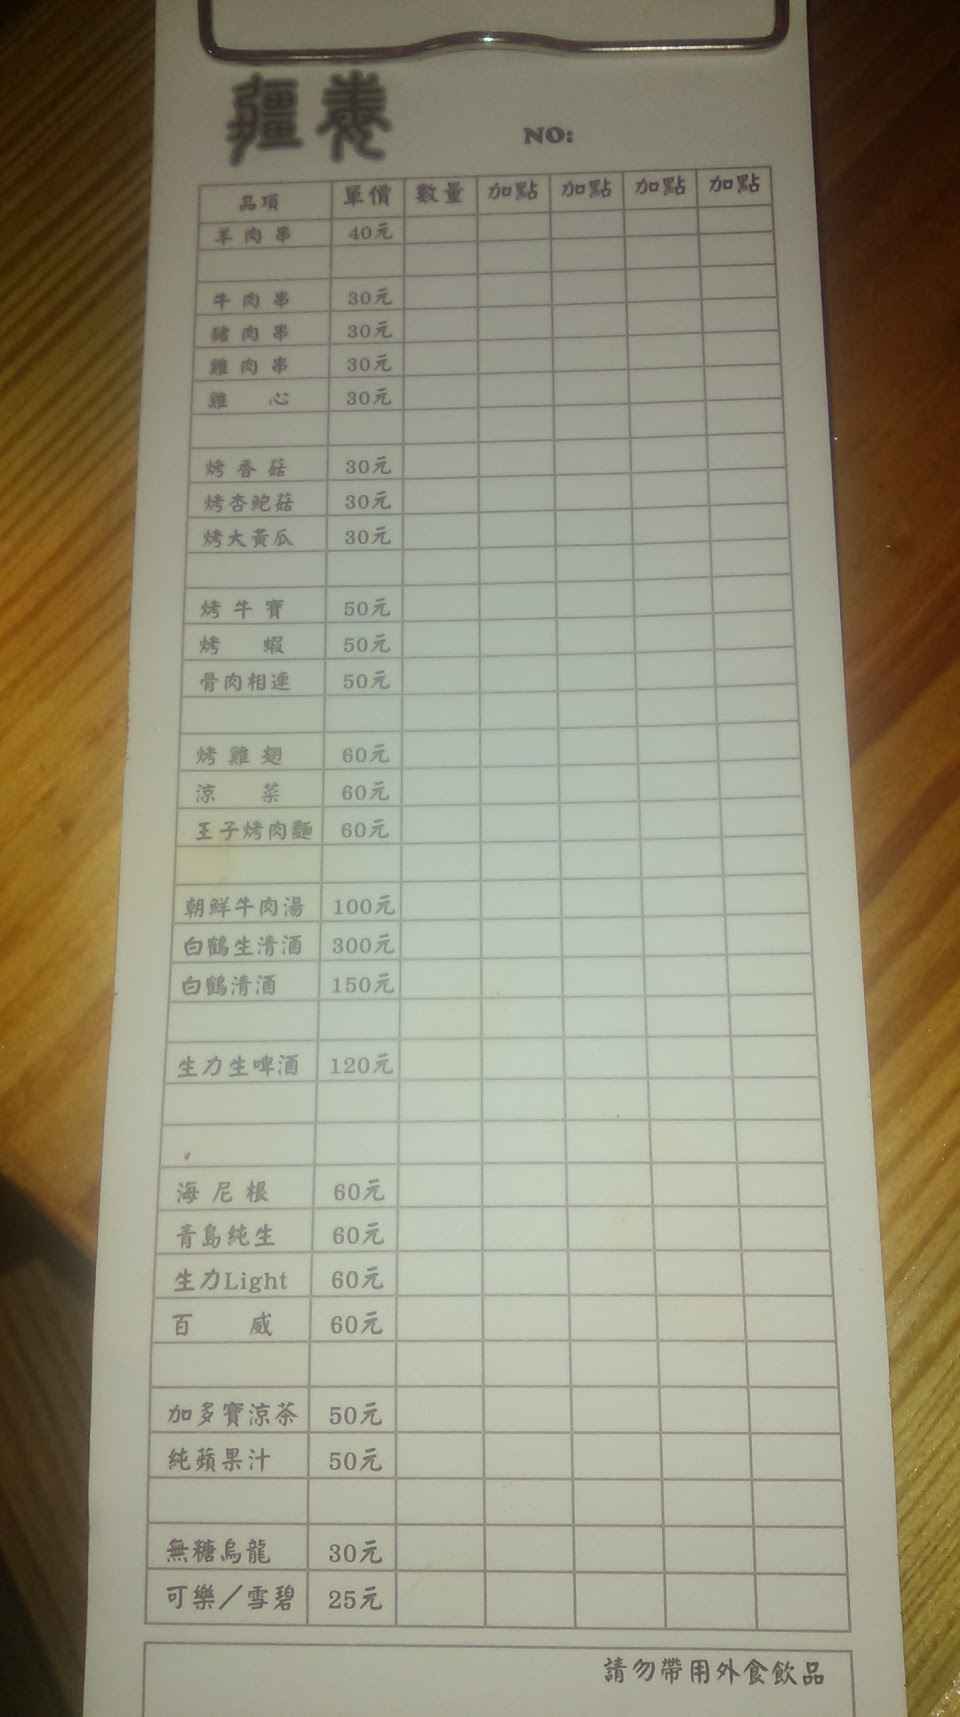 NO:
品項 單價 數量 加點 加點 加點 加點
羊肉串 40元
牛肉串 30元
豬肉串 30元
雞肉串 30元
雞心 30元
烤香菇 30元
烤杏鮑菇 30元
烤大黃瓜 30元
烤牛寶 50元
烤蝦 50元
骨肉相連 50元
烤雞翅 60元
涼菜 60元
王子烤肉麵 60元
朝鮮牛肉湯 100元
白鶴生清酒 300元
白鶴清酒 150元
生力生啤酒 120元
海尼根 60元
青島純生 60元
生力Light 60元
百威 60元
加多寶涼茶 50元
純蘋果汁 50元
無糖烏龍 30元
可樂／雪碧 25元
請勿帶用外食飲品